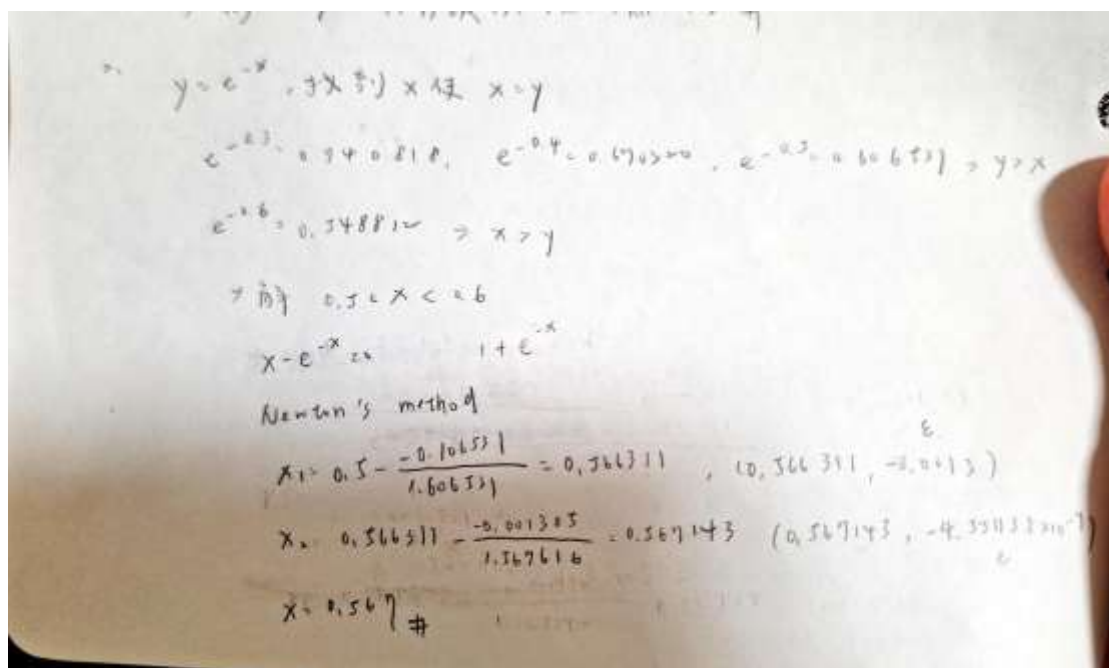 y = e^{-x} , 找到 x 使 x = y
e^{-0.3} = 0.740818, e^{-0.4} = 0.670320, e^{-0.5} = 0.606531 → y > x
e^{-0.6} = 0.548812 → x > y
→ 解 0.5 < x < 0.6
x - e^{-x} = 0 1 + e^{-x}
Newton's method
ε
x_1 = 0.5 - \frac{-0.106531}{1.606531} = 0.566311 , (0.566311, -0.0013)
x_2 = 0.566311 - \frac{-0.001305}{1.567616} = 0.567143 (0.567143,
ε
x = 0.567 #